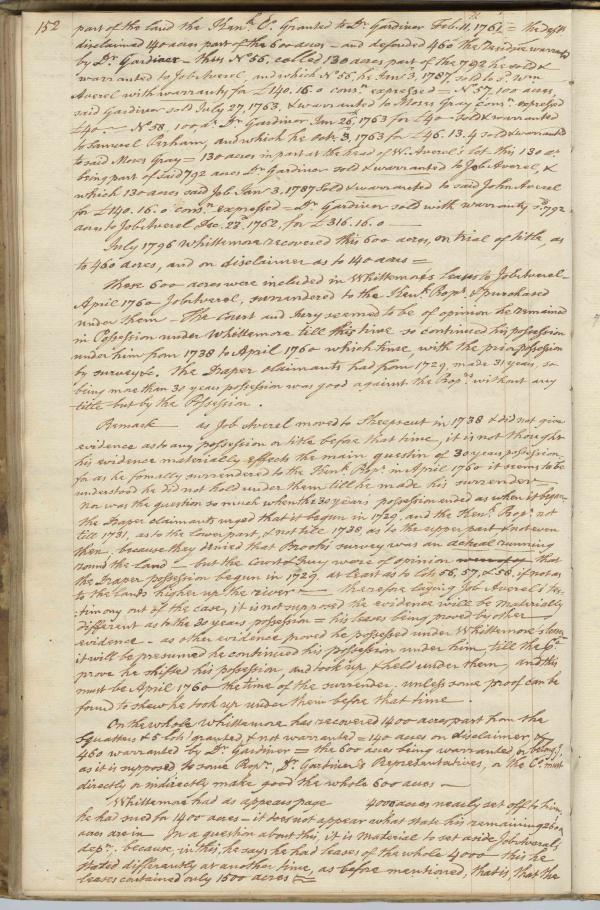 152
part of the land the Kenk. Co. Granted to Dr. Gardiner Feb. 11th, 1761 = the deft
disclaimed 140 acres part of the 600 acres - and defended 460 the residue warranted
by Dr. Gardiner - thus No. 56, called 130 acres part of the 792 he sold &
warranted to Job Averel, and which No. 56, he Jany 3, 1787 sold to sd. Wm
Averel with warranty for £140.16.0 consn. expressed = No. 57, 100 acres,
said Gardiner sold July 27, 1763, & warranted to Moses Gray consn. expressed
£40 - No. 58, 100, as. Dr. Gardiner Jan 26, 1763 for £40 - sold & warranted
to Samuel Perham, and which he Octr. 3, 1763 for £46.13.4 sold & warranted
to said Moses Gray = 130 acres in part at the head of W. Averel's lot this 130 as.
being part of said 792 acres Dr. Gardiner sold & warranted to Job Averel, &
which 130 acres said Job Jan 3. 1787 sold & warranted to said John Averel
for £140.16.0 consn. expressed = Dr. Gardiner sold with warranty sd. 792
acres to Job Averel Dec. 22d, 1762, for £316.16.0 -
July 1796 Whittemore recovered this 600 acres, on trial of title, as
to 460 acres, and on disclaimer as to 140 acres =
These 600 acres were included in Whittemore's leases to Job Averel -
April 1760 Job Averel, surrendered to the Kenk. Proprs. & purchased
under them - The Court and Jury seemed to be of opinion he remained
in Possession under Whittemore till this time so continued his possession
under him from 1738 to April 1760 which time, with the prior possession
by survey &c. the Draper claimants had from 1729, made 31 years, so
being more than 30 years possession was good against the Proprs. without any
title but by the Possession.
Remark - as Job Averel moved to Sheepscut in 1738 & did not give
evidence as to any possession or title before that time, it is not thought
his evidence materially effects the main question of 30 years possession,
for as he formally surrendered to the Kenk. Proprs. in April 1760 it seems to be
understood he did not hold under them till he made his surrender -
Nor was the question so much when the 30 years possession ended as when it began
the Draper claimants urged that it begun in 1729. and the Kenk. Proprs. not
till 1731, as to the lower part, & not till 1738 as to the upper part & not even
then, because they denied that Brooks survey was an actual running
round the land - but the Court & Jury were of opinion that
the Draper possession begun in 1729, at least as to lots 56, 57, & 58, if not as
to the lands higher up the river - therefore laying Job Averel's tes-
timony out of the case, it is not supposed the evidence will be materially
different as to the 30 years possession = his leases being proved by other
evidence - as other evidence proved he possessed under Whittemore's leases
it will be presumed he continued his possession under him, till the Co.
prove he shifted his possession, and took up & held under them, and this
must be April 1760 the time of the surrender. unless some proof can be
found to shew he took up under them before that time.
On the whole Whittemore has recovered 1400 acres part from the
Squatters & 5 lots granted, & not warranted = 140 acres on disclaimer, &
460 warranted by Dr. Gardiner = the 600 acres being warranted, or belongs,
as it is supposed to some Proprs. Dr. Gardiner's Representatives, or the Co. must
directly or indirectly make good the whole 600 acres -
Whittemore had as appears page 4000 acres nearly set off to him,
he had sued for 1400 acres - it does not appear what state his remaining 2600
acres are in In a question about this, it is material to set aside Job Averel's
depn. because, in this, he says he had leases of the whole 4000 - this he
stated differently at another time, as before mentioned, that is, that the
leases contained only 1500 acres =